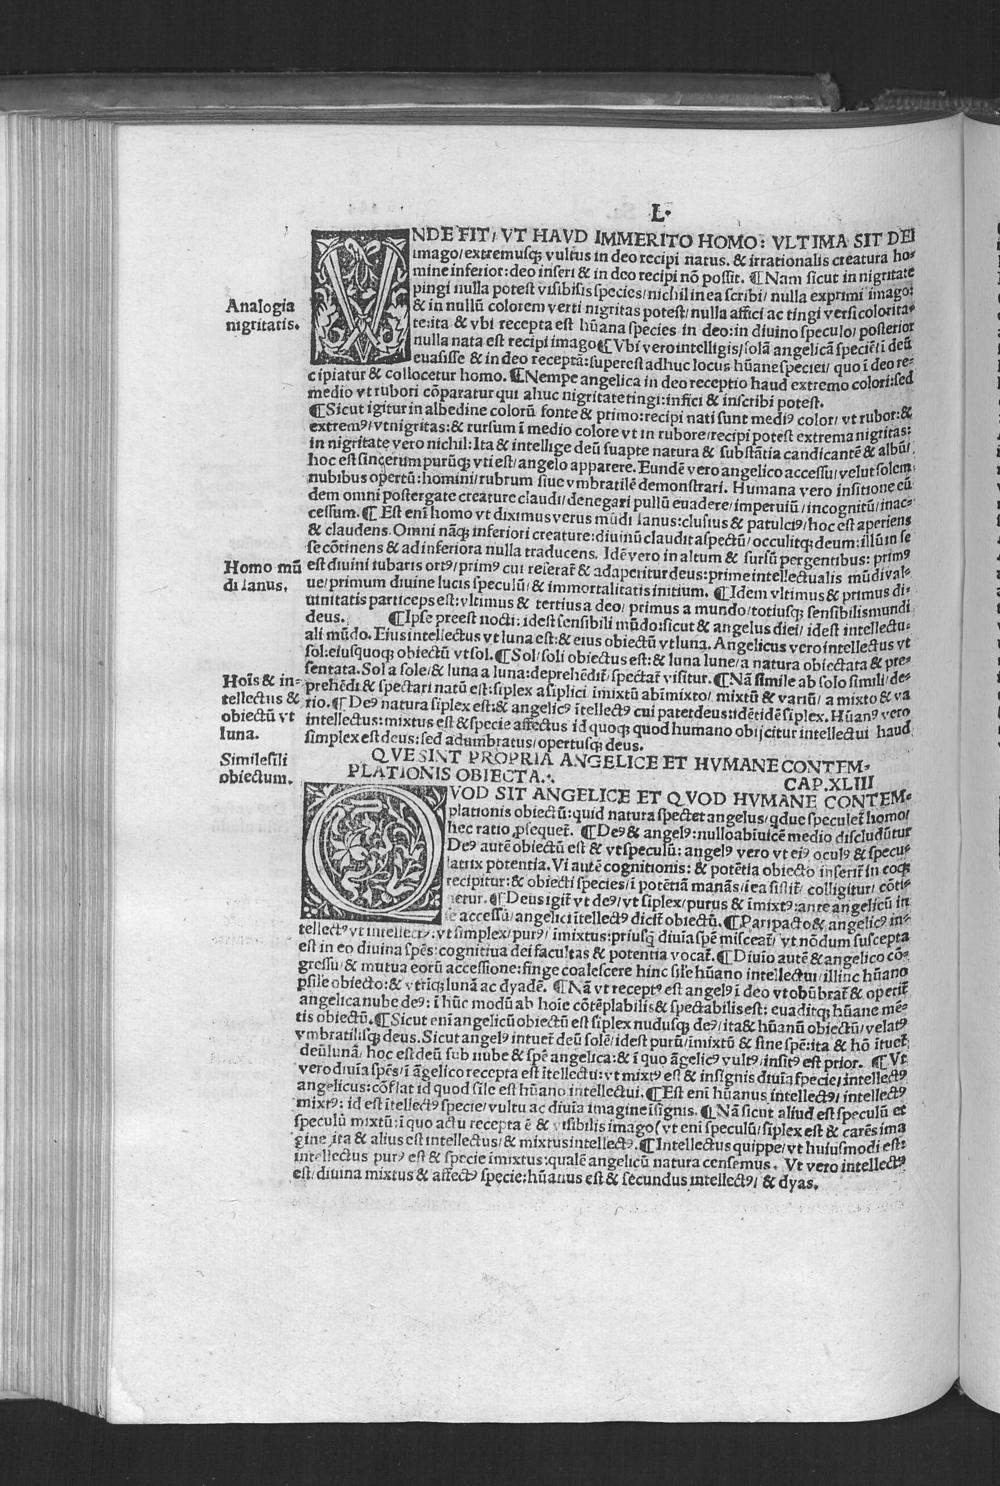 L.
VNDE FIT/ VT HAVD IMMERITO HOMO: VLTIMA SIT DEI
imago/ extremusq; vultus in deo recipi natus. & irrationalis creatura ho-
mine inferior: deo inseri & in deo recipi nō possit. ¶Nam sicut in nigritate
pingi nulla potest visibilis species/ nichil in ea scribi/ nulla exprimi imago:
Analogia
nigritatis.
& in nullū colorem verti nigritas potest/ nulla affici ac tingi versicolorita-
te: ita & vbi recepta est hūana species in deo: in diuino speculo/ posterior
nulla nata est recipi imago ¶Vbi vero intelligis/ solā angelicā speciē ī deū
euasisse & in deo receptā: superest adhuc locus hūane speciei/ quo ī deo re-
cipiatur & collocetur homo. ¶Nempe angelica in deo receptio haud extremo colori: sed
medio vt rubori cōparatur qui ahuc nigritate tingi: infici & inscribi potest.
¶Sicut igitur in albedine colorū fonte & primo: recipi nati sunt mediꝰ color/ vt rubor: &
extremꝰ/ vt nigritas: & rursum ī medio colore vt in rubore/ recipi potest extrema nigritas:
in nigritate vero nichil: Ita & intellige deū suapte natura & substātia candicantē & albū/
hoc est sincerum purūq; vti est/ angelo apparere. Eundē vero angelico accessu/ velut solem
nubibus opertū: homini/ rubrum siue vmbratilē demonstrari. Humana vero insitione eū
dem omni postergate creature claudi/ denegari pullū euadere/ imperuiū/ incognitū/ inac-
cessum. ¶Est enī homo vt diximus verus mūdi Ianus: clusius & patulciꝰ/ hoc est aperiens
& claudens. Omni nāq; inferiori creature: diuinū claudit aspectū/ occulitq; deum: illū in se
se cōtinens & ad inferiora nulla traducens. Idē vero in altum & sursū pergentibus: primꝰ
Homo mū
di Ianus.
est diuini iubaris ortꝰ/ primꝰ cui reserat̄ & adaperitur deus: prime intellectualis mūdi val-
ue/ primum diuine lucis speculū/ & immortalitatis initium. ¶Idem vltimus & primus di-
uinitatis particeps est: vltimus & tertius a deo/ primus a mundo/ totiusq; sensibilis mundi
deus. ¶Ipse preest nocti: idest sensibili mūdo: sicut & angelus diei/ idest intellectu-
ali mūdo. Eius intellectus vt luna est: & eius obiectū vt luna. Angelicus vero intellectus vt
sol: eiusquoq; obiectū vt sol. ¶Sol/ soli obiectus est: & luna lune/ a natura obiectata & pre-
sentata. Sol a sole/ & luna a luna: deprehēdit̄/ spectat̄ visitur. ¶Nā simile ab solo simili/ de-
Hoīs & in-
tellectus &
obiectū vt
luna.
prehēdi & spectari natū est: siplex a siplici imixtū ab imixto/ mixtū & variū/ a mixto & va
rio. ¶Deꝰ natura siplex est: & angelicꝰ ītellectꝰ cui patet deus: idē tidē siplex. Hūanꝰ vero
intellectus: mixtus est & specie affectus id quoq; quod humano obijcitur intellectui haud
simplex est deus: sed adumbratus/ opertusq; deus.
Simile sili
obiectum.
QVE SINT PROPRIA ANGELICE ET HVMANE CONTEM-
PLATIONIS OBIECTA.∴ CAP. XLIII
QVOD SIT ANGELICE ET QVOD HVMANE CONTEM-
plationis obiectū: quid natura spectet angelus/ qdue speculet̄ homo/
hec ratio ꝓsequet̄. ¶Deꝰ & angelꝰ: nullo abinicē medio discludūtur
Deꝰ autē obiectū est & vt speculū: angelꝰ vero vt eiꝰ oculꝰ & specu-
latrix potentia. Vi autē cognitionis: & potētia obiecto inserit̄ in eoq;
recipitur: & obiecti species/ ī potētiā manās/ ī ea sistit̄ colligitur/ cōti-
netur. ¶Deus igit̄ vt deꝰ/ vt siplex/ purus & īmixtꝰ: ante angelicū in
se accessū/ angelici ītellectꝰ dicit̄ obiectū. ¶Pari pacto & angelicꝰ in-
tellectꝰ vt intellectꝰ: vt simplex/ purꝰ/ īmixtus: priusq̄ diuia spē misceat̄/ vt nōdum suscepta
est in eo diuina spēs: cognitiua dei facultas & potentia vocat̄. ¶Diuio autē & angelico cō-
gressu/ & mutua eorū accessione: finge coalescere hinc sile hūano intellectui/ illinc hūano
ꝑsile obiecto: & vtriq; lunā ac dyadē. ¶Nā vt receptꝰ est angelꝰ ī deo vt obūbrat̄ & operit̄
angelica nube deꝰ: ī hūc modū ab hoīe cōtēplabilis & spectabilis est: euaditq; hūane mē-
tis obiectū. ¶Sicut enī angelicū obiectū est siplex nudusq; deꝰ/ ita & hūanū obiectū/ velatꝰ
vmbratilisq; deus. Sicut angelꝰ intuet̄ deū solē/ idest purū/ īmixtū & sine spē: ita & hō ītuet̄
deū lunā/ hoc est deū sub nube & spē angelica: & ī quo āgelicꝰ vultꝰ/ insitꝰ est prior. ¶Vt
vero diuia spēs/ ī āgelico recepta est ītellectu: vt mixtꝰ est & insignis diuia specie/ intellectꝰ
angelicus: cōflat id quod sile est hūano intellectui. ¶Est enī hūanus intellectꝰ/ intellectꝰ
mixtꝰ: id est ītellectꝰ specie/ vultu ac diuia imagine īsignis. ¶Nā sicut aliud est speculū et
speculū mixtū: ī quo actu recepta ē & visibilis imago (vt eni speculū/ siplex est & carēs ima
gine ita & alius est intellectus/ & mixtus intellectꝰ. ¶Intellectus quippe/ vt huiusmodi est:
intellectus purꝰ est & specie īmixtus: qualē angelicū natura censemus. Vt vero intellectꝰ
est/ diuina mixtus & affectꝰ specie: hūanus est & secundus intellectꝰ/ & dyas.